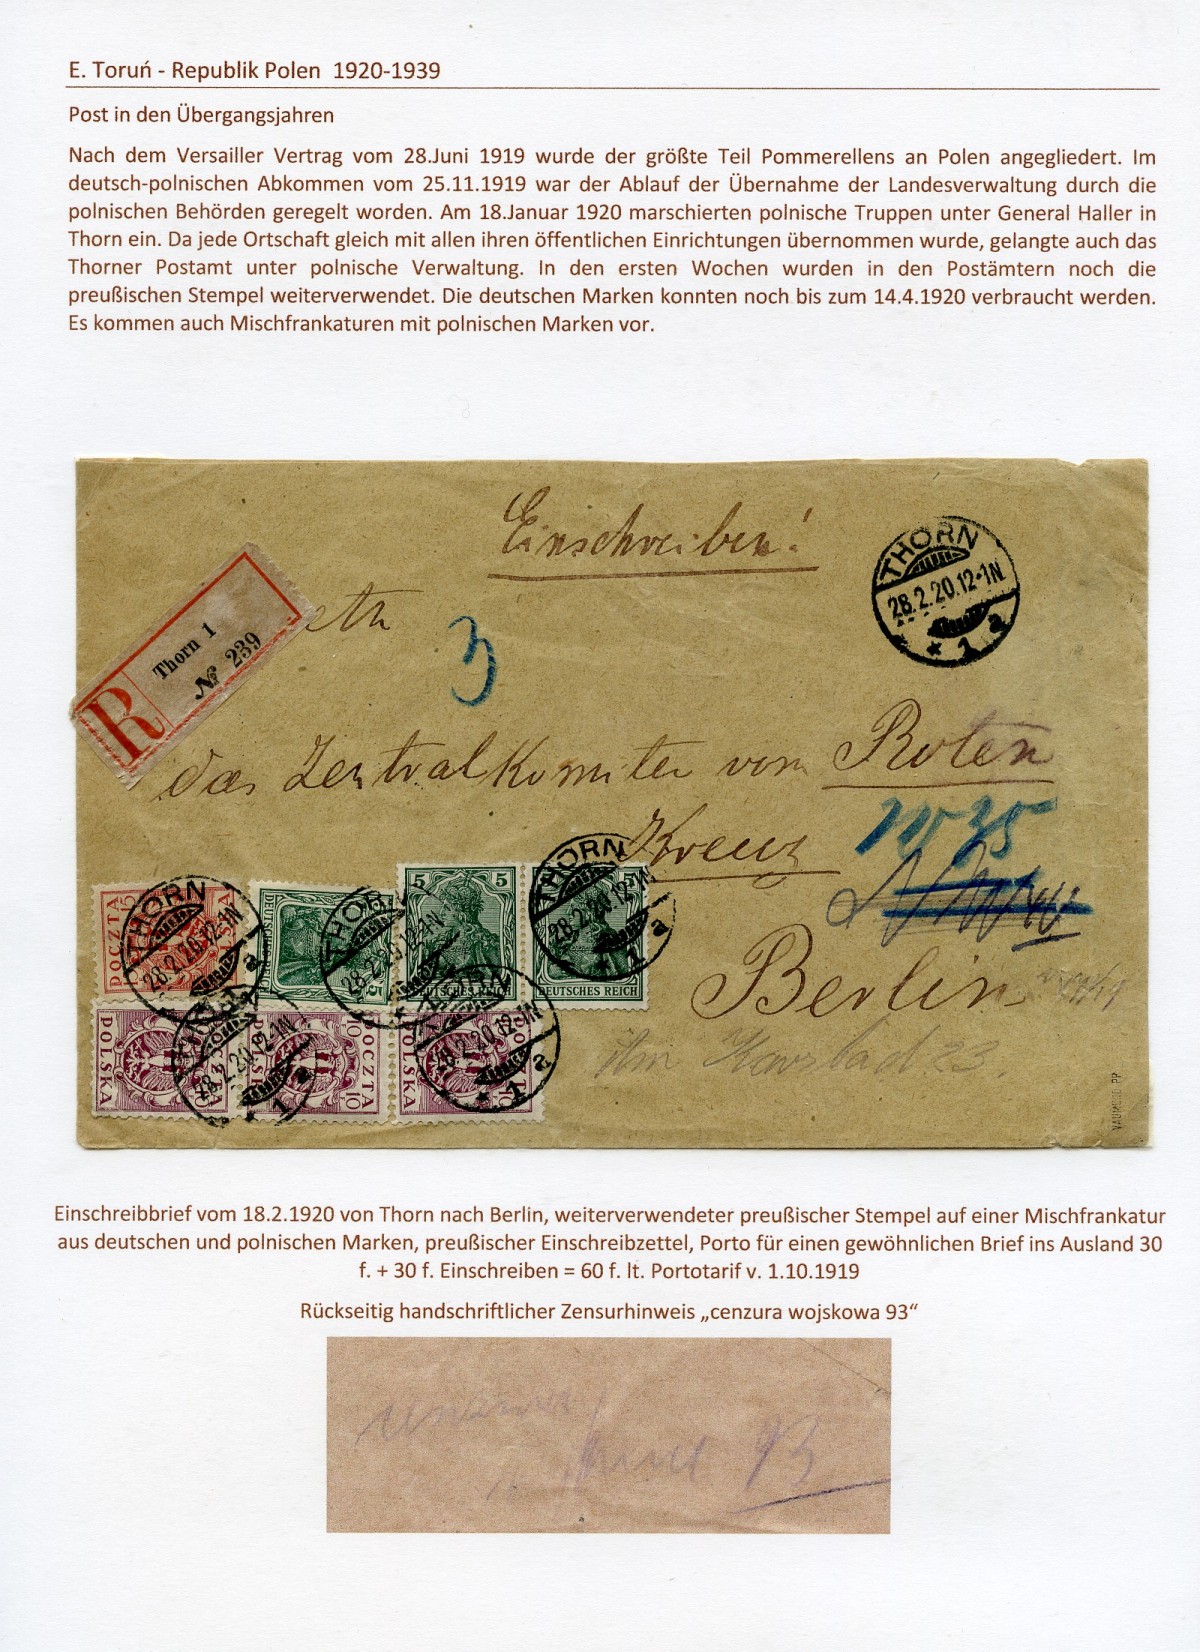 E. Toruń - Republik Polen 1920-1939
Post in den Übergangsjahren
Nach dem Versailler Vertrag vom 28.Juni 1919 wurde der größte Teil Pommerellens an Polen angegliedert. Im
deutsch-polnischen Abkommen vom 25.11.1919 war der Ablauf der Übernahme der Landesverwaltung durch die
polnischen Behörden geregelt worden. Am 18.Januar 1920 marschierten polnische Truppen unter General Haller in
Thorn ein. Da jede Ortschaft gleich mit allen ihren öffentlichen Einrichtungen übernommen wurde, gelangte auch das
Thorner Postamt unter polnische Verwaltung. In den ersten Wochen wurden in den Postämtern noch die
preußischen Stempel weiterverwendet. Die deutschen Marken konnten noch bis zum 14.4.1920 verbraucht werden.
Es kommen auch Mischfrankaturen mit polnischen Marken vor.
Einschreiben!
THORN
28.2.20.12-1N
* 1 a
R
Thorn 1
№ 239
3
das Zentralkomitee vom Roten
Kreuz
Berlin
POCZTA
THORN
28.2.20.12-1N
a
THORN
28.2.20.12-1N
5 5
DEUTSCHES REICH
THORN
28.2.20.12-1N
* 1 a
5
DEUTSCHES REICH
POLSKA
28.2.20.12-1N
* 1
POCZTA
10 10
POLSKA
28.2.20.12-1N
* 1 a
POLSKA
Am Karlsbad 23.
Einschreibbrief vom 18.2.1920 von Thorn nach Berlin, weiterverwendeter preußischer Stempel auf einer Mischfrankatur
aus deutschen und polnischen Marken, preußischer Einschreibzettel, Porto für einen gewöhnlichen Brief ins Ausland 30
f. + 30 f. Einschreiben = 60 f. lt. Portotarif v. 1.10.1919
Rückseitig handschriftlicher Zensurhinweis „cenzura wojskowa 93“
93